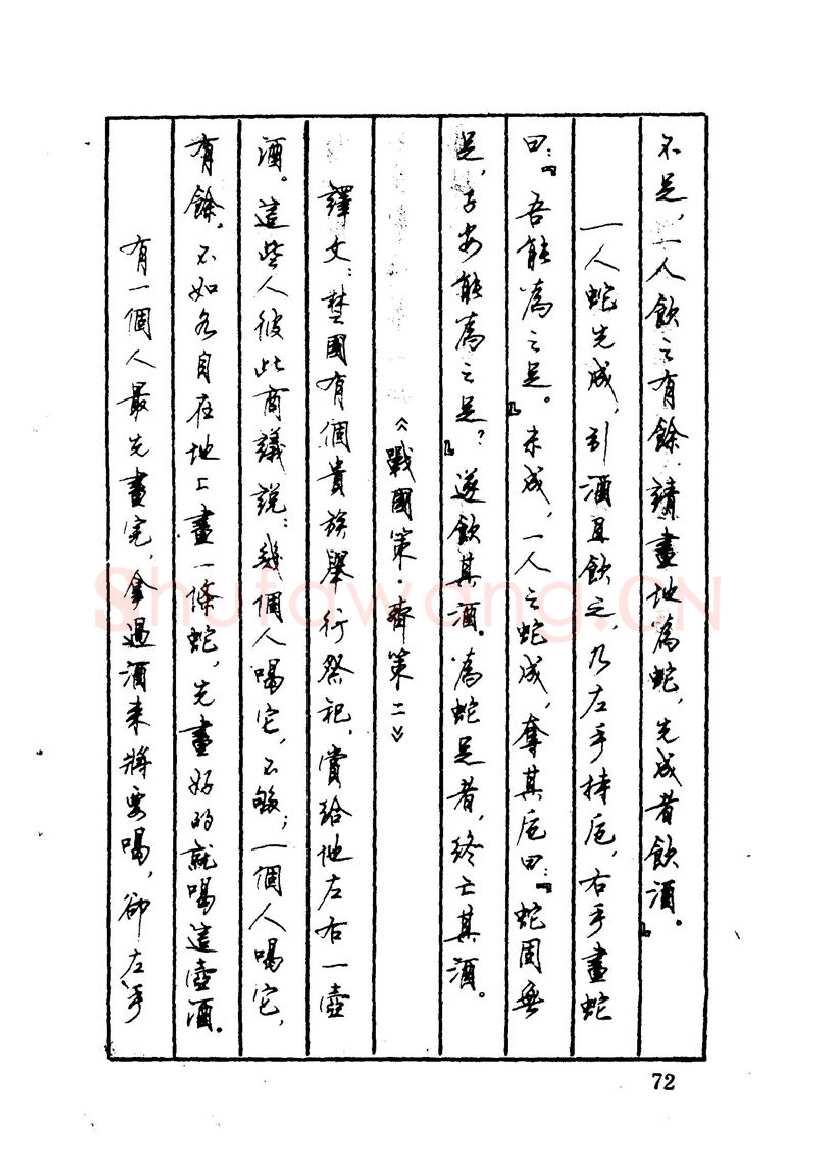 不足，一人飲之有餘。請畫地爲蛇，先成者飲酒。』
一人蛇先成，引酒且飲之，乃左手持卮，右手畫蛇
曰：『吾能爲之足。』未成，一人之蛇成，奪其卮曰：『蛇固無
足，子安能爲之足？』遂飲其酒。爲蛇足者，終亡其酒。
《戰國策·齊策二》
譯文：楚國有個貴族舉行祭祀，賞給他左右一壺
酒。這些人彼此商議說：幾個人喝它，不够；一個人喝它，
有餘。不如各自在地上畫一條蛇，先畫好的就喝這壺酒。
有一個人最先畫完，拿過酒來將要喝，卻左手
72
Shufawang.CN